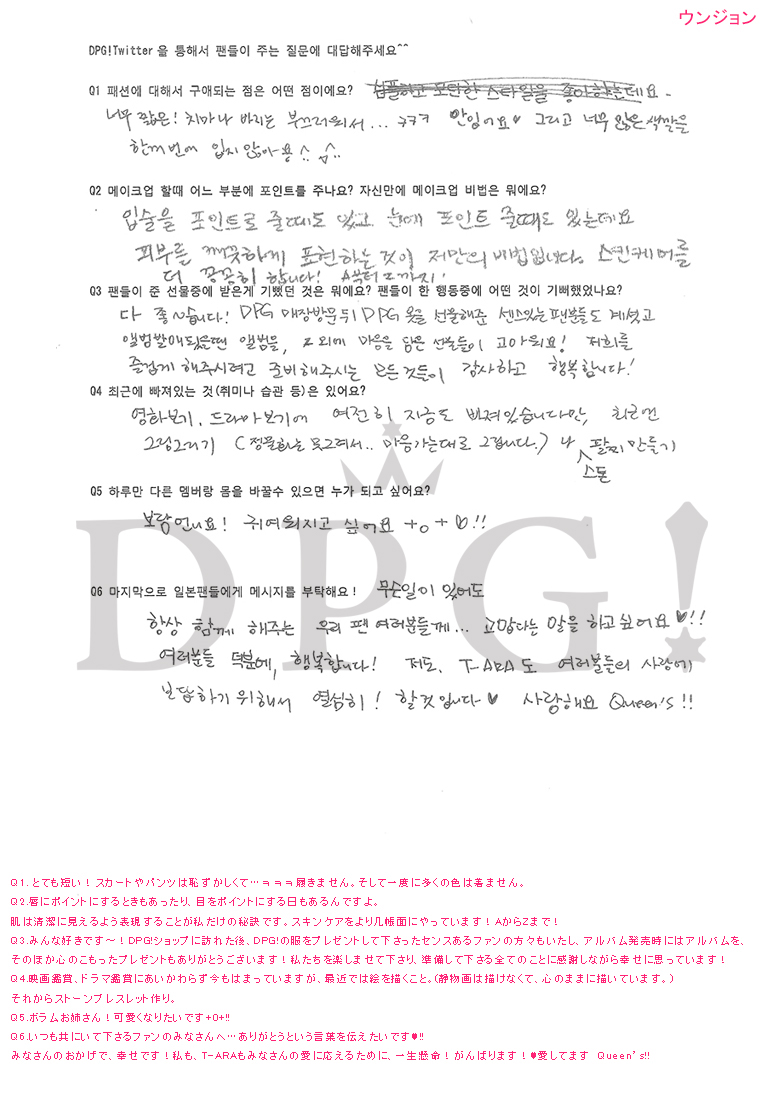 ウンジョン
DPG!Twitter을 통해서 팬들이 주는 질문에 대답해주세요^^
Q1 패션에 대해서 구애되는 점은 어떤 점이에요? 심플하고 모던한 스타일을 좋아하는데요.
너무 짧은! 치마나 바지는 부끄러워서... ㅋㅋㅋ 안입어요♥ 그리고 너무 많은 색깔을
한꺼번에 입지 않아용^^
Q2 메이크업 할때 어느 부분에 포인트를 주나요? 자신만에 메이크업 비법은 뭐에요?
입술을 포인트로 줄때도 있고 눈에 포인트 줄때도 있는데요
피부를 깨끗하게 표현하는 것이 저만의 비법입니다. 스킨케어를
더 꼼꼼히 합니다! A부터 Z까지!
Q3 팬들이 준 선물중에 받은게 기뻤던 것은 뭐에요? 팬들이 한 행동중에 어떤 것이 기뻐했었나요?
다 좋~습니다! DPG 매장방문뒤 DPG 옷을 선물해준 센스있는 팬분들도 계셨고
앨범발매되었을땐 앨범을, 그외에 마음을 담은 선물들이 고마워요! 저희를
즐겁게 해주시려고 준비해주시는 모든것들이 감사하고 행복합니다!
Q4 최근에 빠져있는 것(취미나 습관 등)은 있어요?
영화보기, 드라마보기에 여전히 지금도 빠져있습니다만, 최근엔
그림그리기 (정물화는 못그려서.. 마음가는대로 그립니다.) 나 스톤 팔찌 만들기
Q5 하루만 다른 멤버랑 몸을 바꿀수 있으면 누가 되고 싶어요?
보람언니요! 귀여워지고 싶어요 +o+♥!!
Q6 마지막으로 일본팬들에게 메시지를 부탁해요! 무슨일이 있어도
항상 함께 해주는 우리 팬 여러분들께... 고맙다는 말을 하고싶어요♥!!
여러분들 덕분에, 행복합니다! 저도, T-ARA도 여러분들의 사랑에
보답하기 위해서 열심히! 할것입니다♥ 사랑해요 Queen's!!
DPG!
Q1.とても短い！スカートやパンツは恥ずかしくて…ㅋㅋㅋ履きません。そして一度に多くの色は着ません。
Q2.唇にポイントにするときもあったり、目をポイントにする日もあるんですよ。
肌は清潔に見えるよう表現することが私だけの秘訣です。スキンケアをより几帳面にやっています！AからZまで！
Q3.みんな好きです～！DPG!ショップに訪れた後、DPG!の服をプレゼントして下さったセンスあるファンの方々もいたし、アルバム発売時にはアルバムを、
そのほか心のこもったプレゼントもありがとうございます！私たちを楽しませて下さり、準備して下さる全てのことに感謝しながら幸せに思っています！
Q4.映画鑑賞、ドラマ鑑賞にあいかわらず今もはまっていますが、最近では絵を描くこと。（静物画は描けなくて、心のままに描いています。）
それからストーンブレスレット作り。
Q5.ボラムお姉さん！可愛くなりたいです+O+!!
Q6.いつも共にいて下さるファンのみなさんへ…ありがとうという言葉を伝えたいです♥!!
みなさんのおかげで、幸せです！私も、T-ARAもみなさんの愛に応えるために、一生懸命！がんばります！♥愛してます Queen's!!